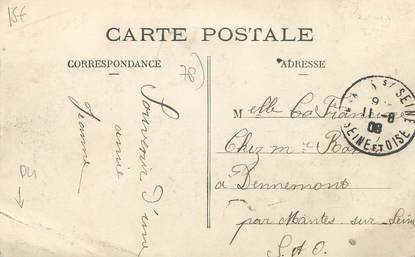 15F
CARTE POSTALE
CORRESPONDANCE
ADRESSE
78
Souvenir d'une
amie
Jeanne
Melle
Chez Mr
a Dennemont
par Mantes sur Seine
S. et O.
S/ SEINE
9
11-8
08
SEINE ET OISE